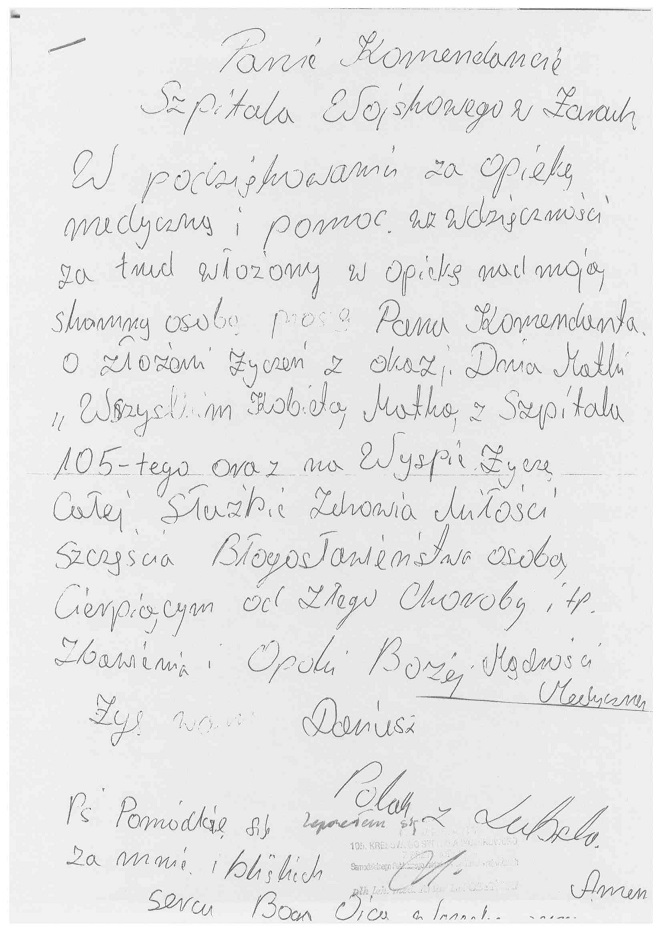 Panie Komendancie
Szpitala Wojskowego w Żarach
W podziękowaniu za opiekę
medyczną i pomoc. wz wdzięczności
za trud włożony w opiekę nad moją
skromną osobą proszę Pana Komendanta.
o złożeni życzeń z okazji Dnia Matki
„ Wszystkim Kobietą, Matką, z Szpitala
105-tego oraz na Wyspie. Życzę
Całej Służbie Zdrowia Miłości
Szczęścia Błogosławieństwa osobą,
Cierpiącym od złego Choroby itp.
Zbawienia i Opoki Bożej Mądrości
Medycznej
Żyę Dariusz
Polak z Lubska.
Ps Pomódlcię się Zapoznałem się
za mnie i bliskich
Amen
Sercu Boga Ojca